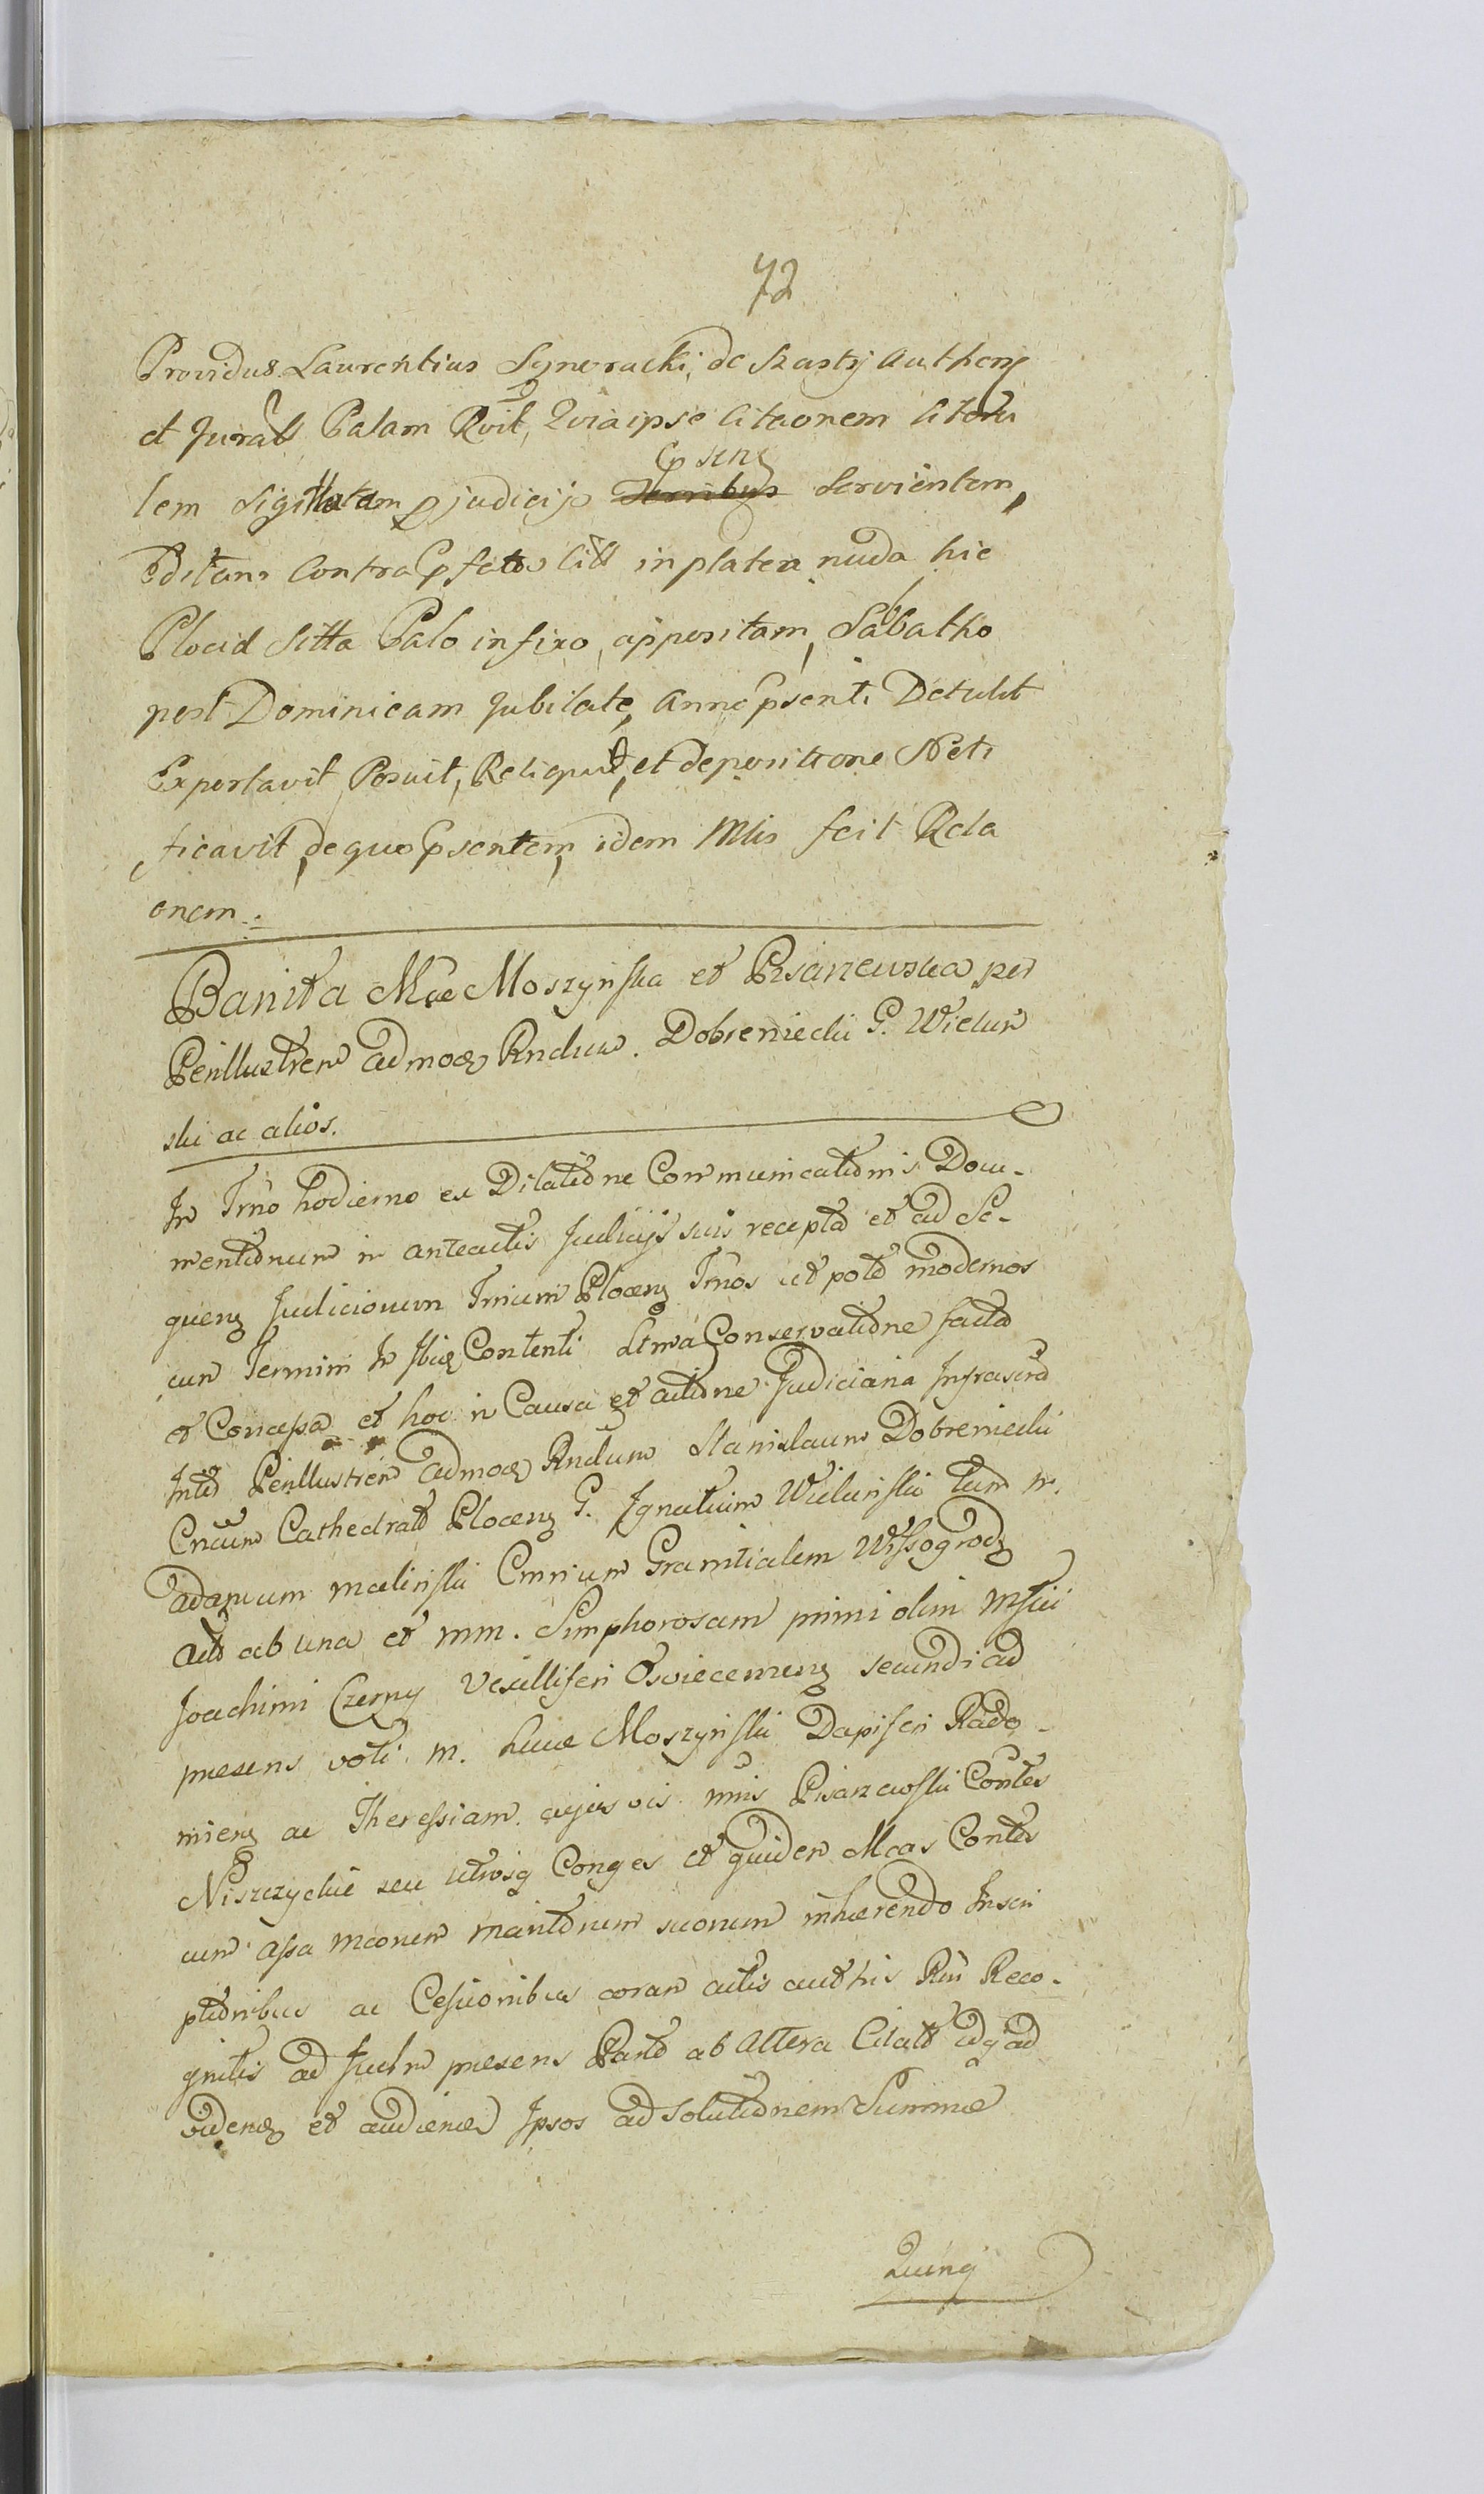 72
Providus Laurentius Synoracki, de Szasty Authenᵹ
et Jurāt Palam Rvit, Quia ipse Citaonem Literā
lem Sigillatam p judicijs psenᵹ Servientem,
Editam Contra psctos Citt in platea nuda hic
Plociæ Sitta Palo infixo, appositam, Sabatho
post Dominicam Jubilate, Anno psenti Detulit
Exportavit Posuit, Reliquit, et depositione Noti
ficavit, de quo psentem, idem Mlis fcit Rela
onem.
Banita Mcæ Moszynska et Pisarzewska per
Perillustrem admoᵹ Rndum. Dobreniecki G. Wielun
ski ac alios.
In Trno hodierno ex Dilatione Communicationis Docu-
mentorum in anteactis Judicijs suis recepta et ad Se-
quenᵹ Judiciorum Trrium Plocenᵹ Trnos ut pote modernos
cum Termini in Ibiᵹ Contenti Ltma Conservatione facta
et Concessa et hoc in Causa et actione Judiciaria Infrascrip
Inter Perillustrem admoᵹ Rndum Stanislaum Dobreniecki
Cncum Cathedralē Plocenᵹ G. Ignatium Wielunski tum M.
Adamum Malinski Cmrium Granitialem Wissogrodᵹ
Act ab una et MM. Simphorosam primi olim Msci
Joachimi Czerny Vexilliferi Oswiecemenᵹ secundi ad
presens voti M. Lucæ Moszynski Dapiferi Rado-
mienᵹ ac Theressiam. cujus vis Mnis Pisarzewski Contes
Niszczyckie seu utriusq Conges et quidem Mcas Contes
cum assa Mcorum maritorum suorum inhærendo Inscri
ptionibus ac Cessionibus coram actis authis Rni Reco-
gnitis ad Judm presens Parte ab Altera Citatt idq ad
videnᵹ et audienᵹ Ipsos ad solutionem Summæ
Quinq